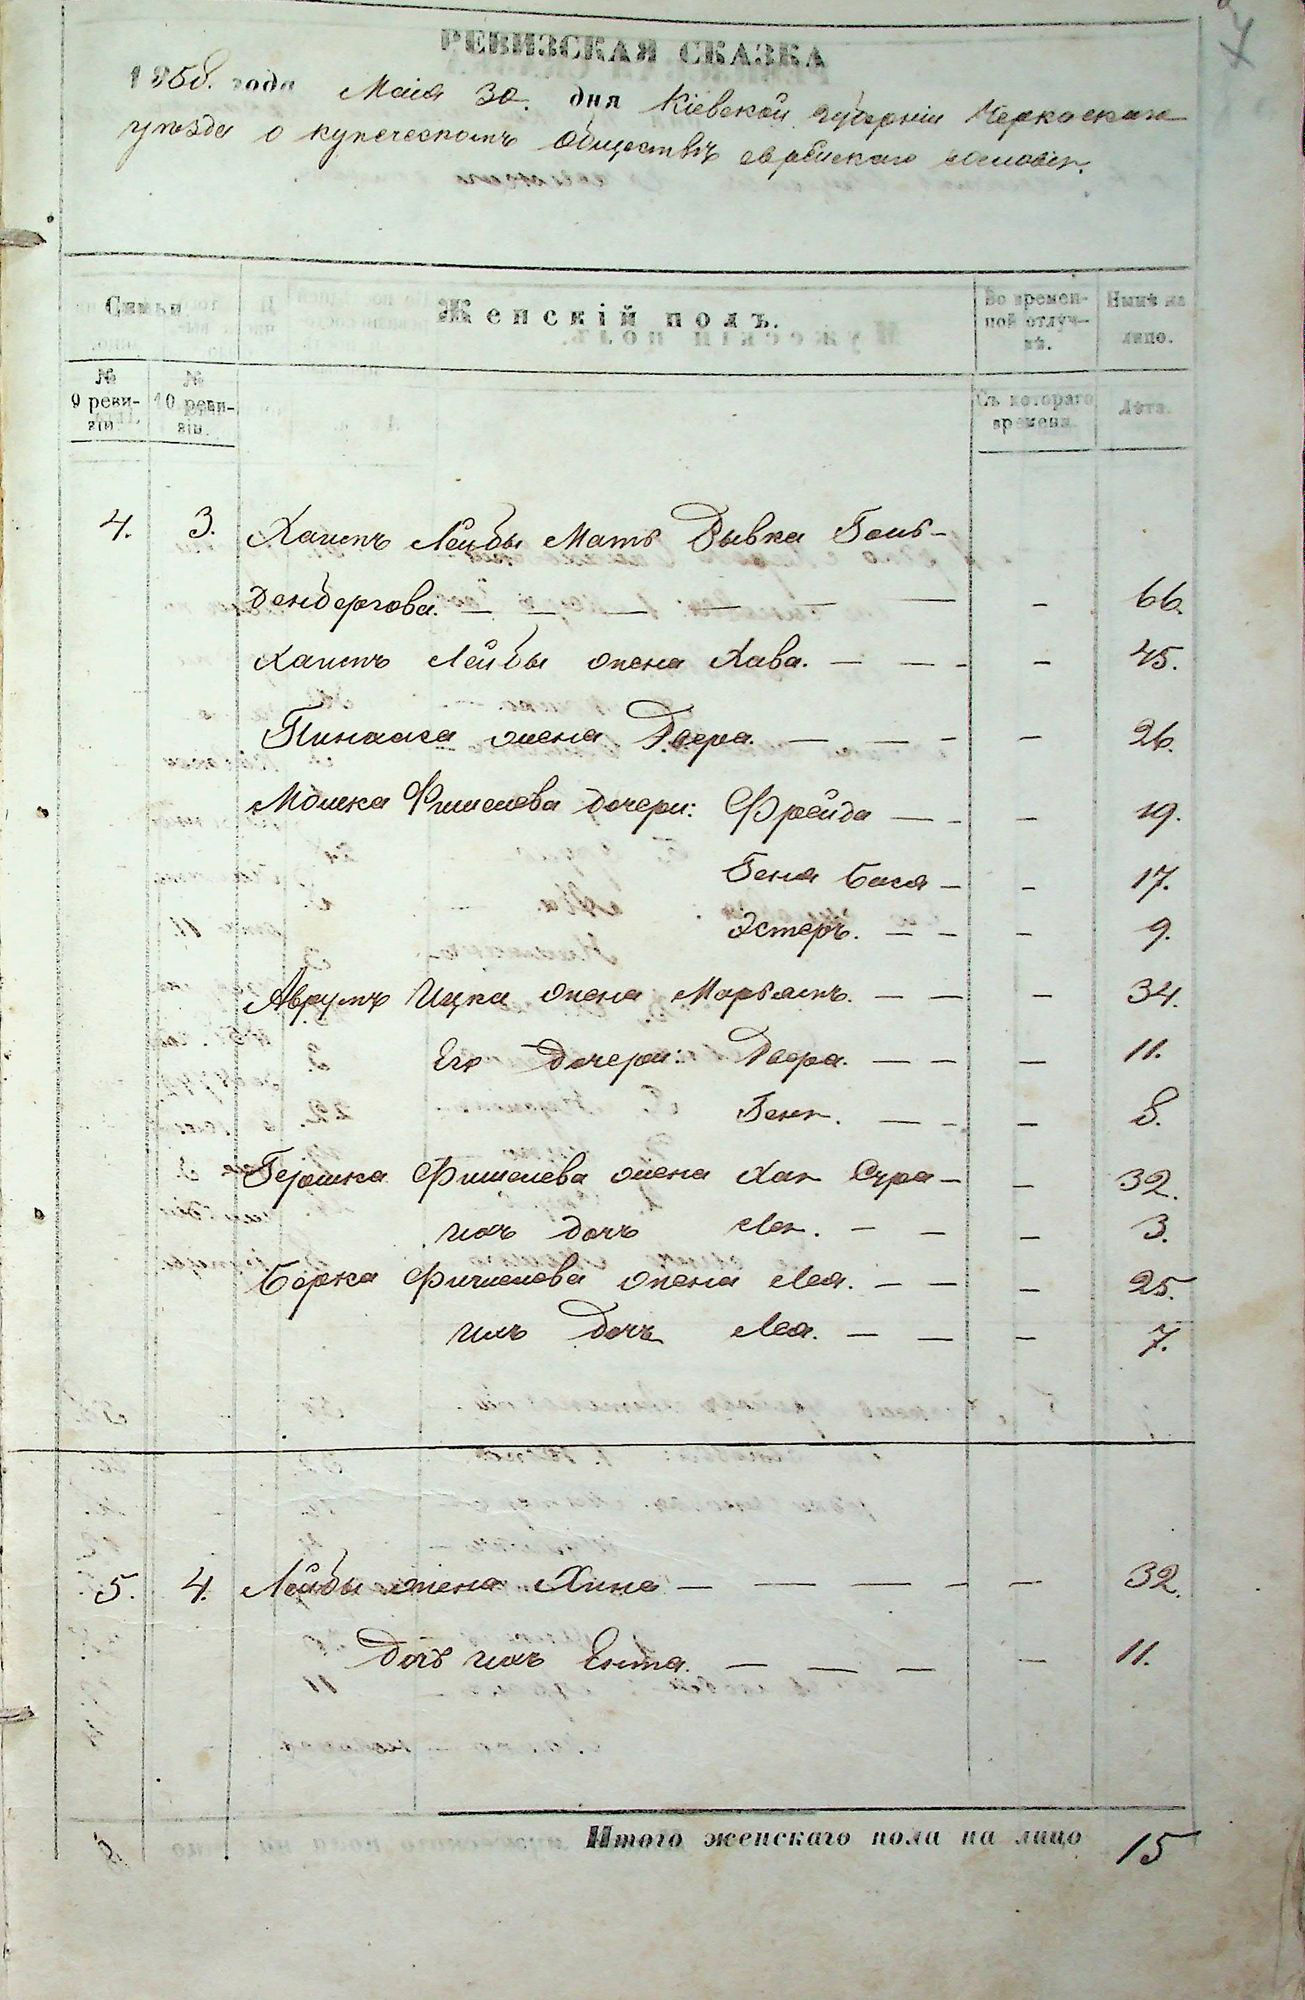 РЕВИЗСКАЯ СКАЗКА
1858. года Маія 30. дня Кіевской губерніи Черкаскаго
уезда о купеческомъ обществѣ еврейскаго сословія.
Семьи Женскій полъ. Во времен-ной отлуч-кѣ. Нынѣ на лицо.
№ 9 реви-зіи. № 10 реви-зіи. Съ котораго времени. Лѣта.
4. 3. Хаимъ Лейбы Мать Рывка Голь-
денбергова. — — — — — — 66.
Хаимъ Лейбы жена Хава. — — - — 45.
Пинхаса жена Двера. — — - — 26.
Мошка Фишелева дочери: Фрейда — - — 19.
Геня Бася — - 17.
Эстеръ. — — — 9.
Аврумъ Ицка жена Марьямъ. — — — 34.
Его дочери: Двера. — — — 11.
Геня. — - — 8.
Гершка Фишелева жена Хая Сура — — 32.
ихъ дочь Лея. — — — 3.
Борка Фишелева жена Лея. — — — 25.
ихъ дочь Лея. — — — 7.
5. 4. Лейбы жена Хина — — — - — 32.
Дочь ихъ Ента. — — — — 11.
Итого женскаго пола на лицо 15